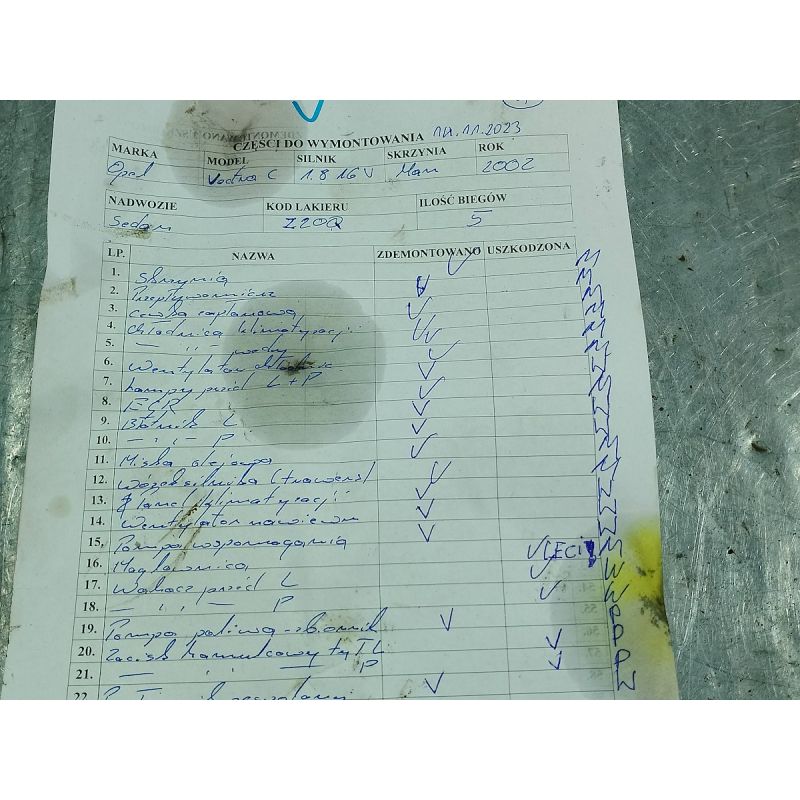 CZĘŚCI DO WYMONTOWANIA 14.11.2023
MARKA MODEL SILNIK SKRZYNIA ROK
Opel Vectra C 1.8 16V Man 2002
NADWOZIE KOD LAKIERU ILOŚĆ BIEGÓW
Sedan Z20Q 5
LP. NAZWA ZDEMONTOWANO USZKODZONA
1. Skrzynia
2. Przepływomierz
3. Cewka zapłonowa
4. Chłodnica klimatyzacji
5. — ,, — wody
6. Wentylator
7. Lampy przód L + P
8. EGR
9. Błotnik L
10. — ,, — P
11. Miska olejowa
12. (trawers)
13. Panel klimatyzacji
14. Wentylator nawiewu
15. Pompa wspomagania
16. Maglownica
17. Wahacz przód L
18. — ,, — P
19. Pompa paliwa - zbiornik
20. Zacisk hamulcowy tył L
21. — ,, — P
22.